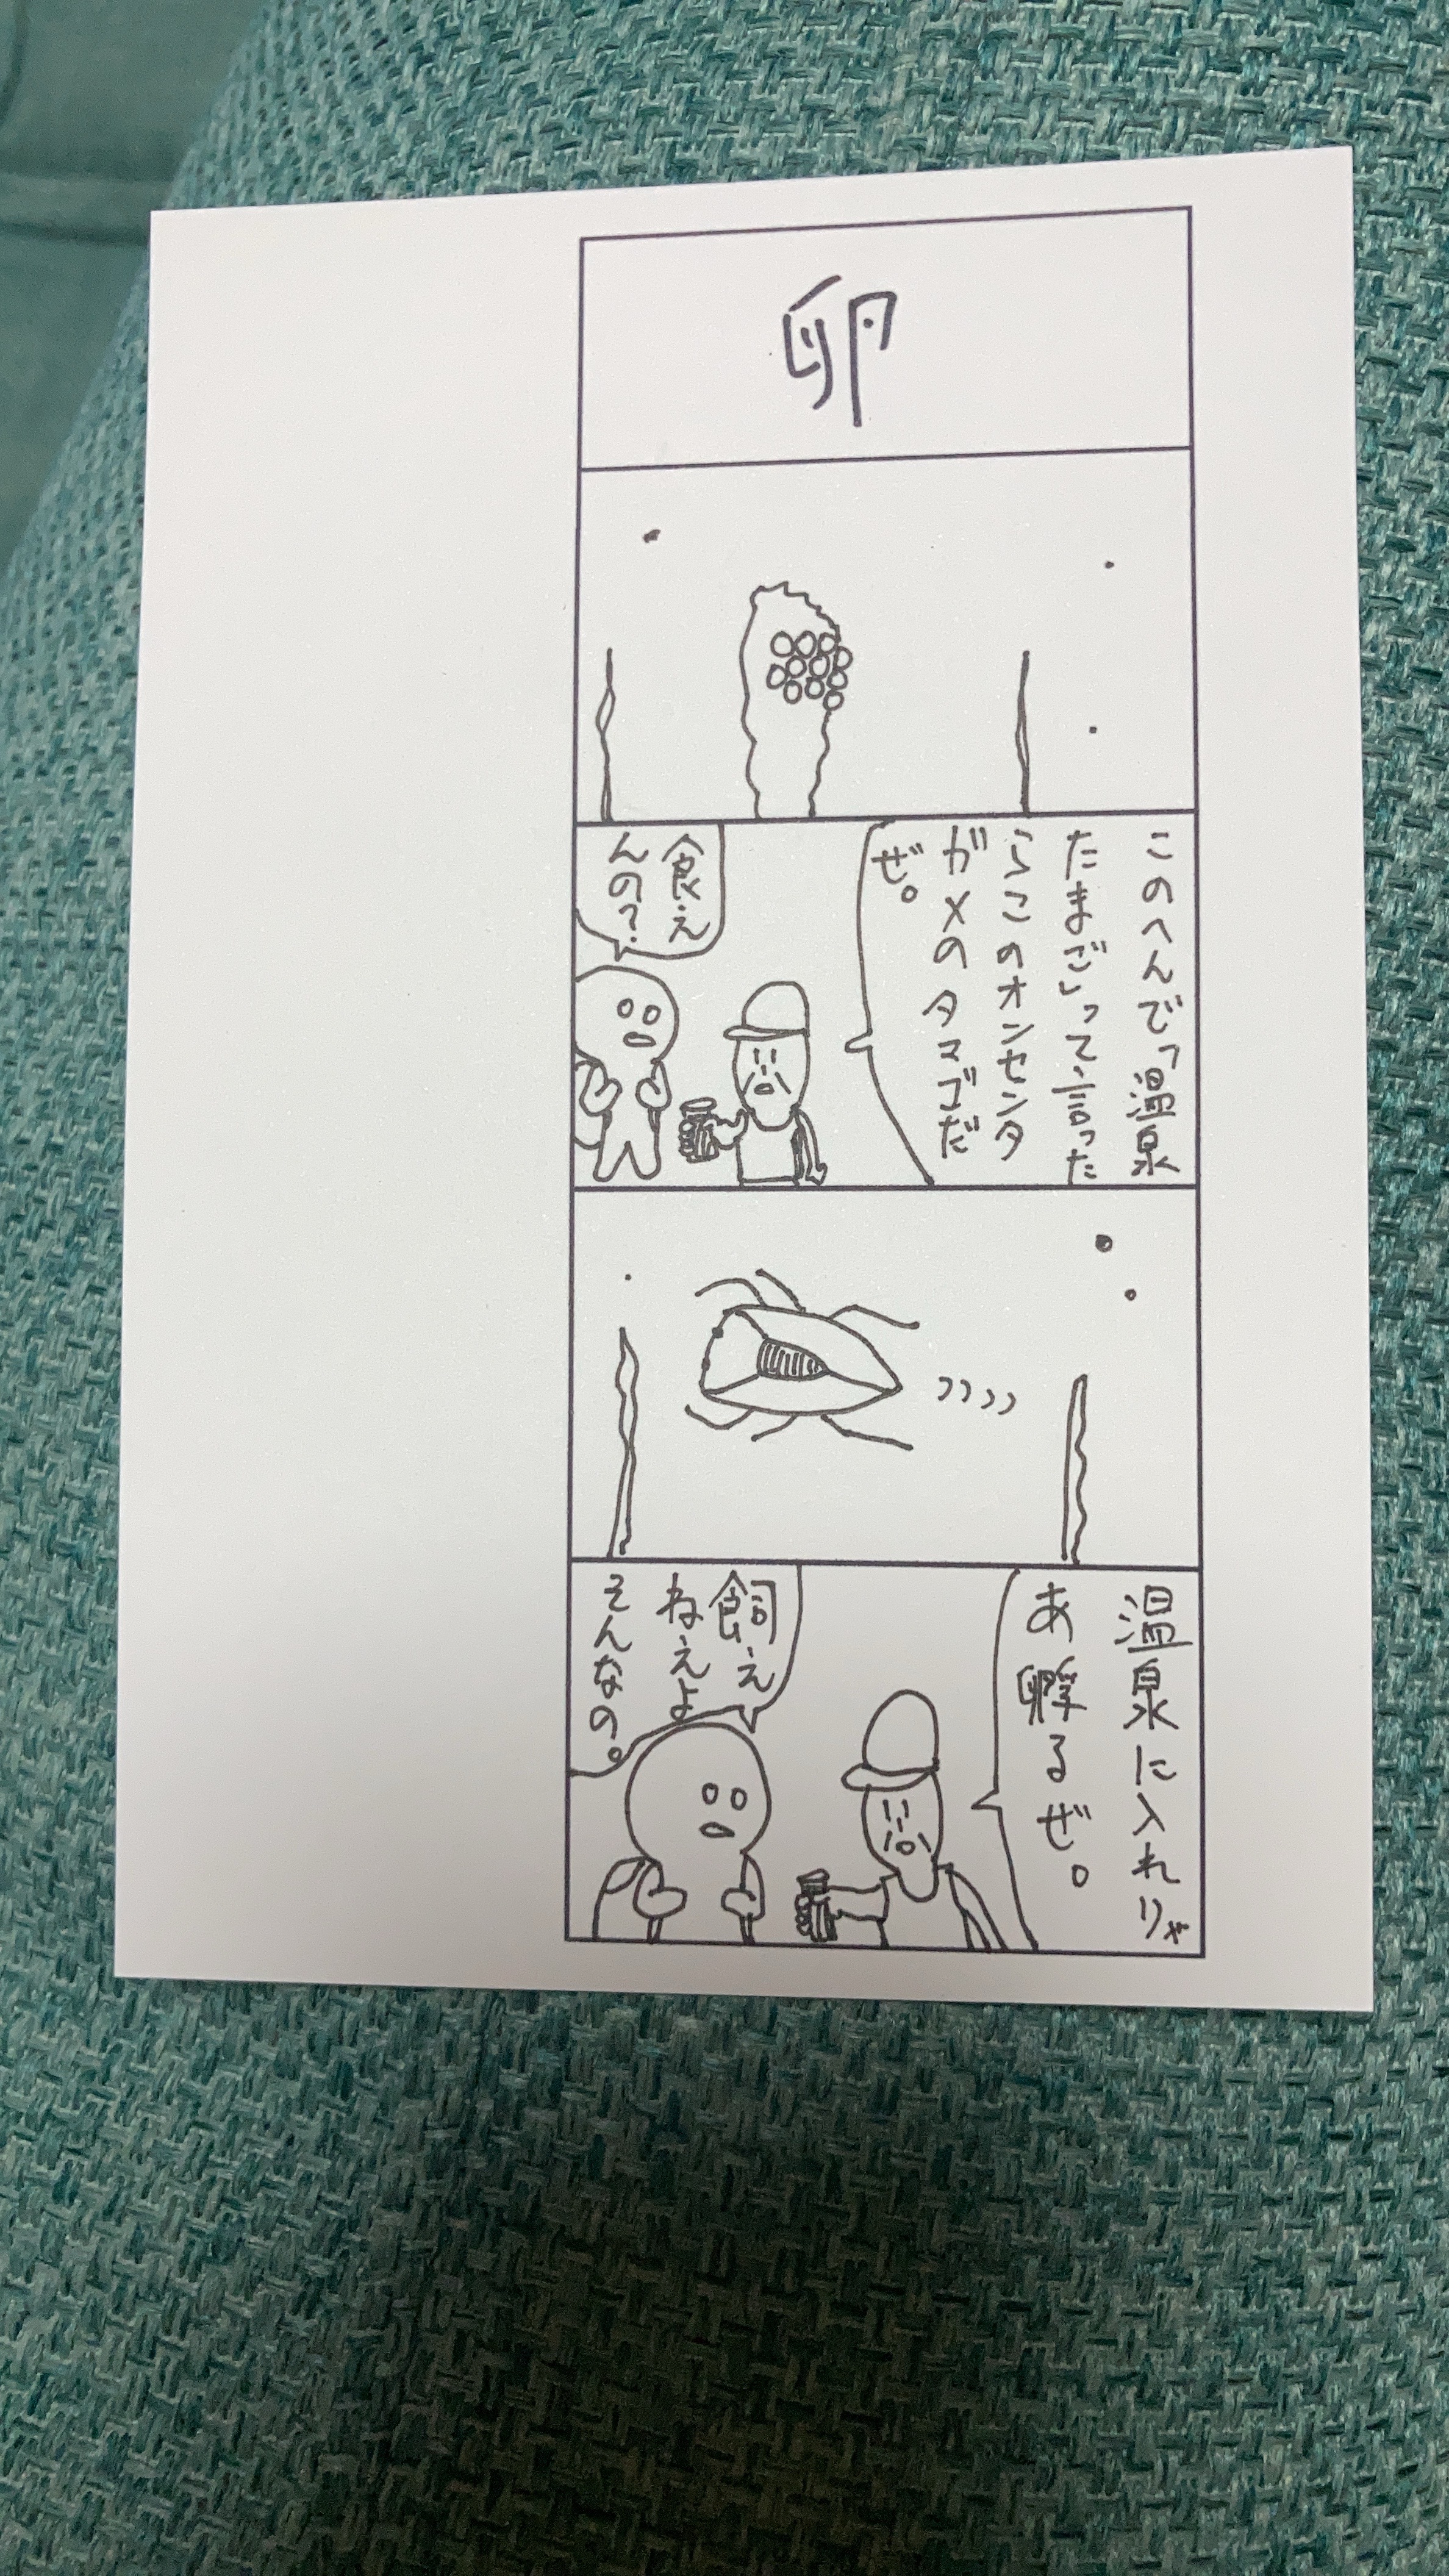 卵
このへんで「温泉
たまご」って言った
らこのオンセンタ
ガメのタマゴだ
ぜ。
食え
んの?
温泉に入れりゃ
あ孵るぜ。
飼え
ねえよ
そんなの。